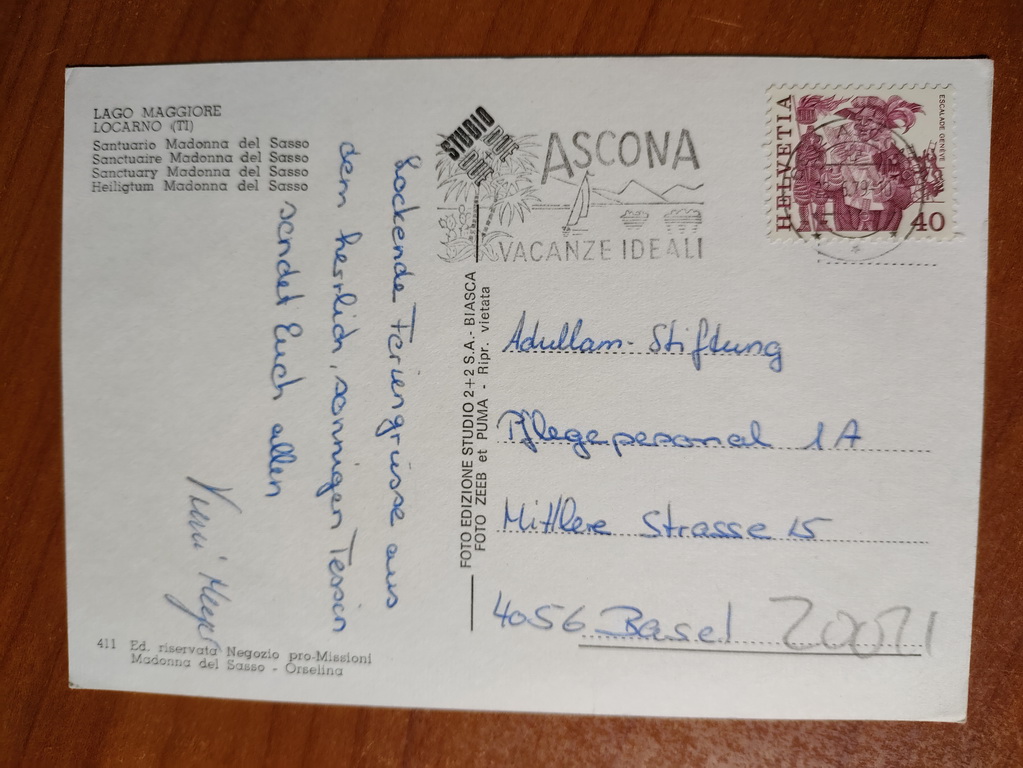 LAGO MAGGIORE
LOCARNO (TI)
Santuario Madonna del Sasso
Sanctuaire Madonna del Sasso
Sanctuary Madonna del Sasso
Heiligtum Madonna del Sasso
Lockende Feriengrüsse aus
dem herrlich, sonnigen Tessin
sendet Euch allen
411 Ed. riservata Negozio pro-Missioni
Madonna del Sasso - Orselina
STUDIO
DUE
+
DUE
FOTO EDIZIONE STUDIO 2+2 S.A. - BIASCA
FOTO ZEEB et PUMA - Ripr. vietata
ASCONA
VACANZE IDEALI
HELVETIA
ESCALADE GENÈVE
40
Adullam-Stiftung
Pflegepersonal 1A
Mittlere Strasse 15
4056 Basel